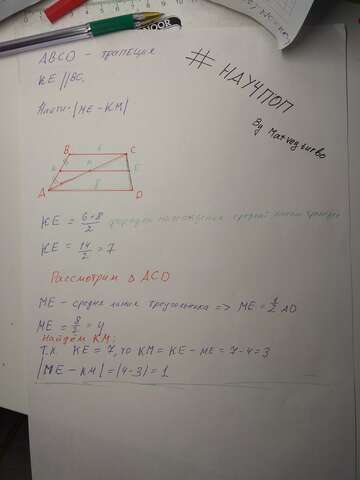 ABCD - трапеция
KE || BC,
# НАУЧПОП
Найти: |ME - KM|
By Matvey turbo
B 6 C
K M E
A 8 D
KE = 6+8/2 формула нахождения средней линии
KE = 14/2 = 7
Рассмотрим Δ ACD
ME - средняя линия треугольника => ME = 1/2 AD
ME = 8/2 = 4
Найдём KM:
Т.к. KE = 7, то KM = KE - ME = 7-4 = 3
|ME - KM| = |4-3| = 1